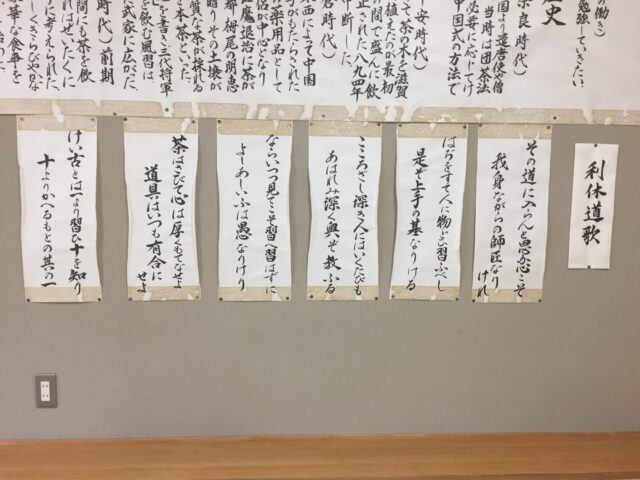 の働き)
勉強していきたい。
歴史
奈良時代)
国より遣唐使や僧
当時は団茶法
必要に応じてけ
中国式の方法で
安時代)
て茶の木を滋賀
植えたのが最初
の間で盛んに飲
止された八九四年
中断した。
倉時代)
西によって中国
がもたらされた
の薬用品として
侶が中心となり
睡魔退治に茶が
都栂尾の明恵
贈りその土壌が
質な茶が採れる
本茶といった。
と書き三代将軍
を飲む風習は
武家に広がった。
時代) 前期
間にも茶を飲
ればぜいたくに
に考えられた
しくきらびやかな
華な食事を
利休道歌
その道に入らんと思ふ心こそ
我身ながらの師匠なりけれ
はぢをすて人に物とひ習ふべし
是ぞ上手の基なりける
こころざし深き人にはいくたびも
あはれみ深く奥ぞ教ふる
ならいつつ見てこそ習へ習はずに
よしあしいふは愚なりけり
茶はさびて心は厚くもてなせよ
道具はいつも有合にせよ
けい古とは一より習ひ十を知り
十よりかへるもとの其の一